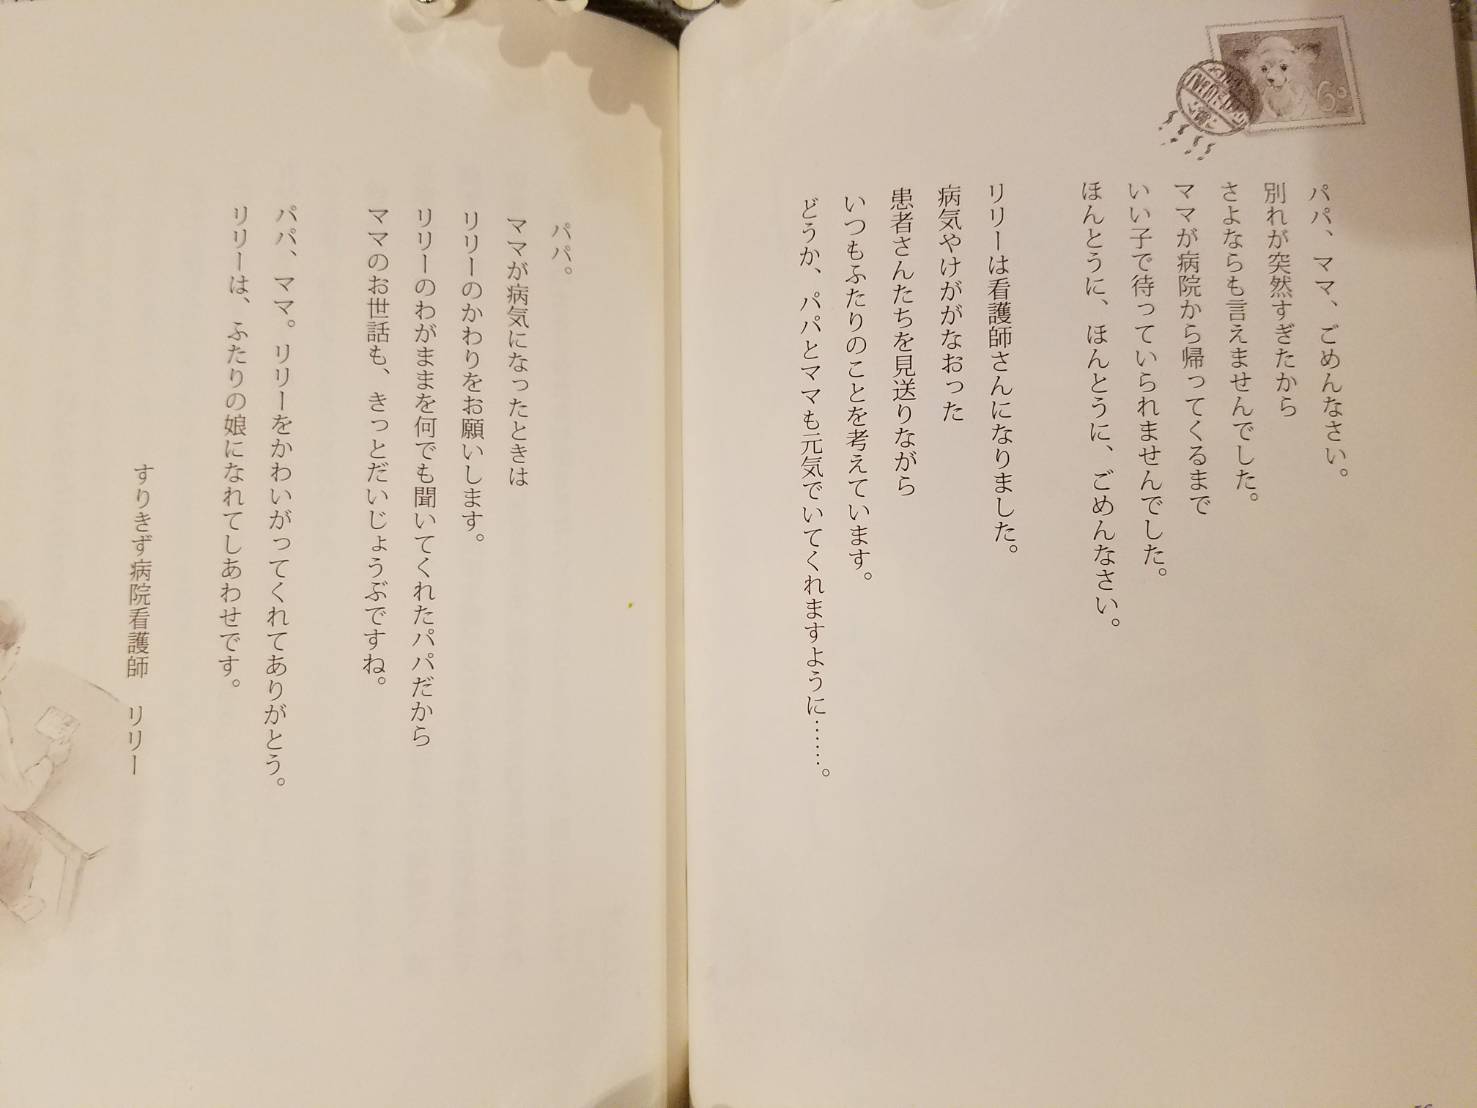 パパ、ママ、ごめんなさい。
別れが突然すぎたから
さよならも言えませんでした。
ママが病院から帰ってくるまで
いい子で待っていられませんでした。
ほんとうに、ほんとうに、ごめんなさい。
リリーは看護師さんになりました。
病気やけががなおった
患者さんたちを見送りながら
いつもふたりのことを考えています。
どうか、パパとママも元気でいてくれますように……。
パパ。
ママが病気になったときは
リリーのかわりをお願いします。
リリーのわがままを何でも聞いてくれたパパだから
ママのお世話も、きっとだいじょうぶですね。
パパ、ママ。リリーをかわいがってくれてありがとう。
リリーは、ふたりの娘になれてしあわせです。
すりきず病院看護師　リリー